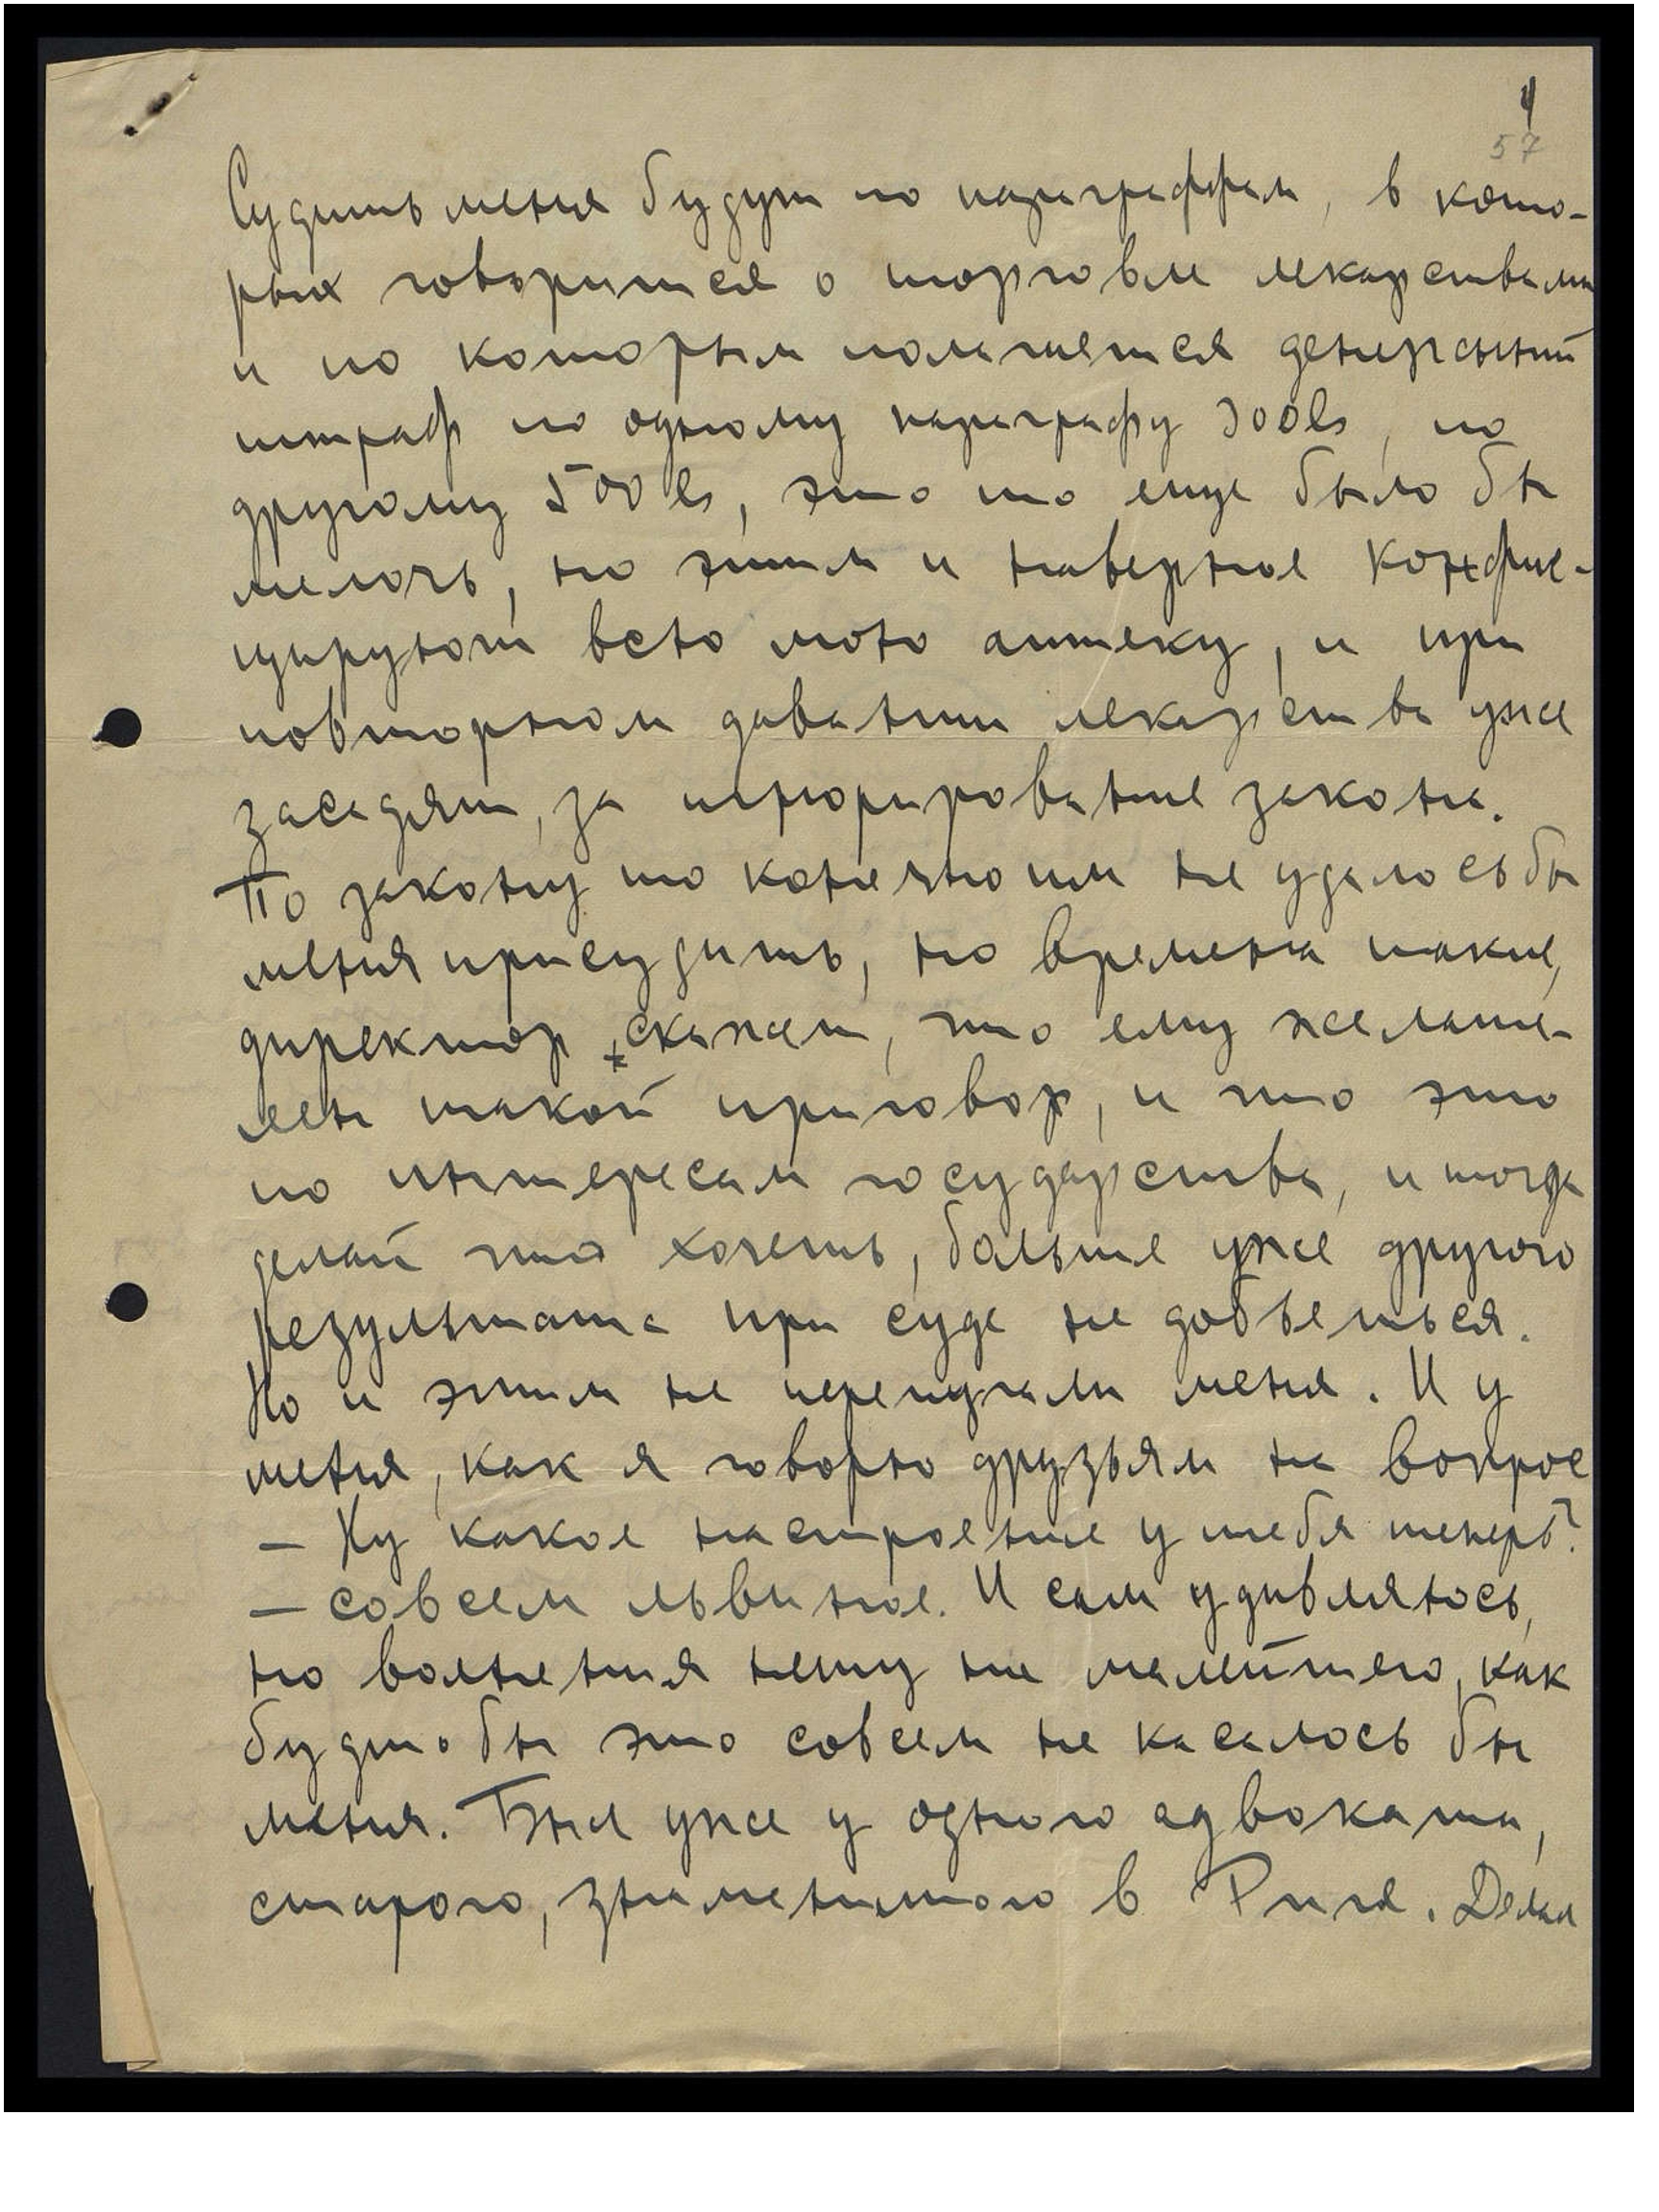 4
57
Судить меня будут по параграффам, в кото-
рых говорится о торговле лекарствами
и по которым полагается денержный
штраф по одному параграфу 300 ls, по
другому 500 ls, это то еще было бы
мелочь, но этим и наверное конфис-
цируют всю мою аптеку, и при
повторном давании лекарства уже
засадят, за игнорирование закона.
По закону то конечно им не удалось бы
меня присудить, но времена такие,
директор + скажет, что ему желате-
лен такой приговор, и что это
по интересам государства, и тогда
делай что хочешь, больше уже другого
результата при суде не добьешься.
Но и этим не перепугали меня. И у
меня, как я говорю друзьям на вопрос
– Ну какое настроение у тебя теперь?
– совсем львиное. И сам удивляюсь,
но волнения нету ни малейшего, как
будто бы это совсем не касалось бы
меня. Был уже у одного адвоката,
старого, знаменитого в Риге. Делал